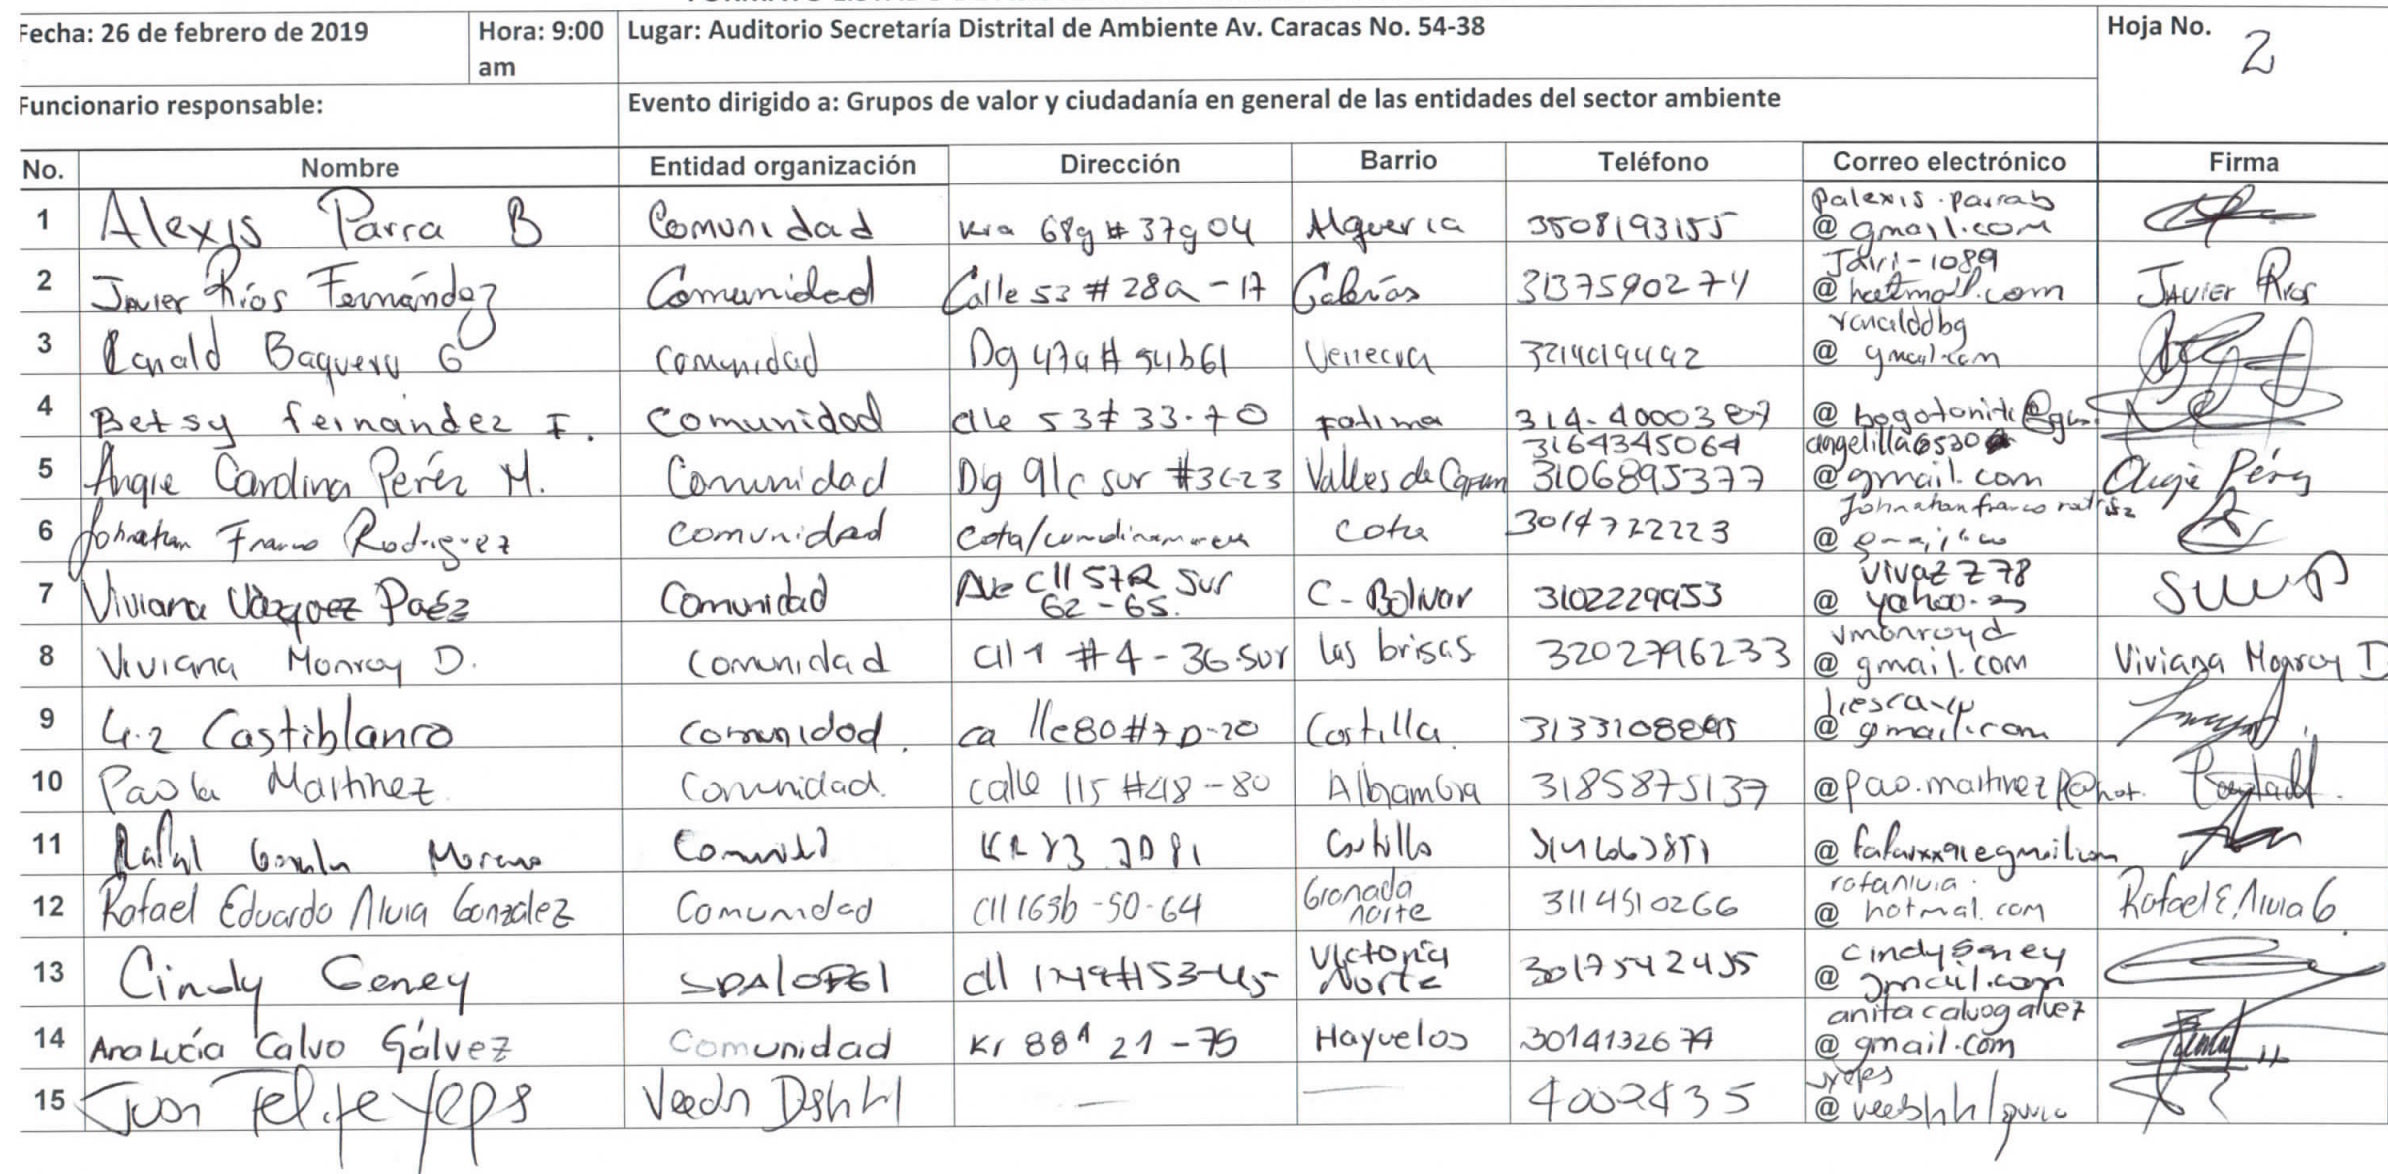 Fecha: 26 de febrero de 2019 Hora: 9:00 am Lugar: Auditorio Secretaría Distrital de Ambiente Av. Caracas No. 54-38 Hoja No. 2
Funcionario responsable: Evento dirigido a: Grupos de valor y ciudadanía en general de las entidades del sector ambiente
No. Nombre Entidad organización Dirección Barrio Teléfono Correo electrónico Firma
1 Alexis Parra B Comunidad Kra 68g # 37g 04 Alqueria 3508193155 palexis.parrab @ gmail.com
2 Javier Ríos Fernández Comunidad Calle 53 # 28a - 17 Galerías 3137590274 Javi-1089 @ hotmail.com Javier Rios
3 Ronald Baquero G Comunidad Dg 47a # 54b61 Venecia 3214019492 ronalddbg @ gmail.com
4 Betsy fernandez F. Comunidad Clle 53 # 33-70 Fatima 314-4000387 @
5 Angie Carolina Peréz M. Comunidad Dig 91c sur #3c-23 Valles de 3164345064 3106895377 angelilla6530 @gmail.com Angie Pérez
6 Johnatan Franco Rodriguez Comunidad Cota/cundinamarca Cota 3014722223 @
7 Viviana Vàzquez Paéz Comunidad Ave Cll 57R Sur 62-65. C-Bolivar 3102229953 vivazz78 @ yahoo.es
8 Viviana Monroy D. Comunidad Cll 1 #4-36 sur las brisas 3202796233 vmonroyd @ gmail.com Viviana Monroy D
9 Castiblanco Comunidad. calle 80 #7D-20 Castilla. @ gmail.com
10 Paola Martinez. Comunidad. calle 115 #48-80 Alhambra 3185875137 @pao.martinezp@hot.
11 Moreno Comunidad Castilla @
12 Rafael Eduardo Nuvia Gonzalez Comunidad Cll 163b-50-64 Granada norte 3114510266 @ hotmal.com Rafael E.
13 Cindy Geney Cll 149#153-45 Victoria Norte 3017542455 cindygeney @ gmail.com
14 Ana Lucía Calvo Gálvez Comunidad Kr 88A 21-75 Hayuelos 3014132674 anitacalvogalvez @ gmail.com
15 Juan Felipe Yepes — — 4002435 @